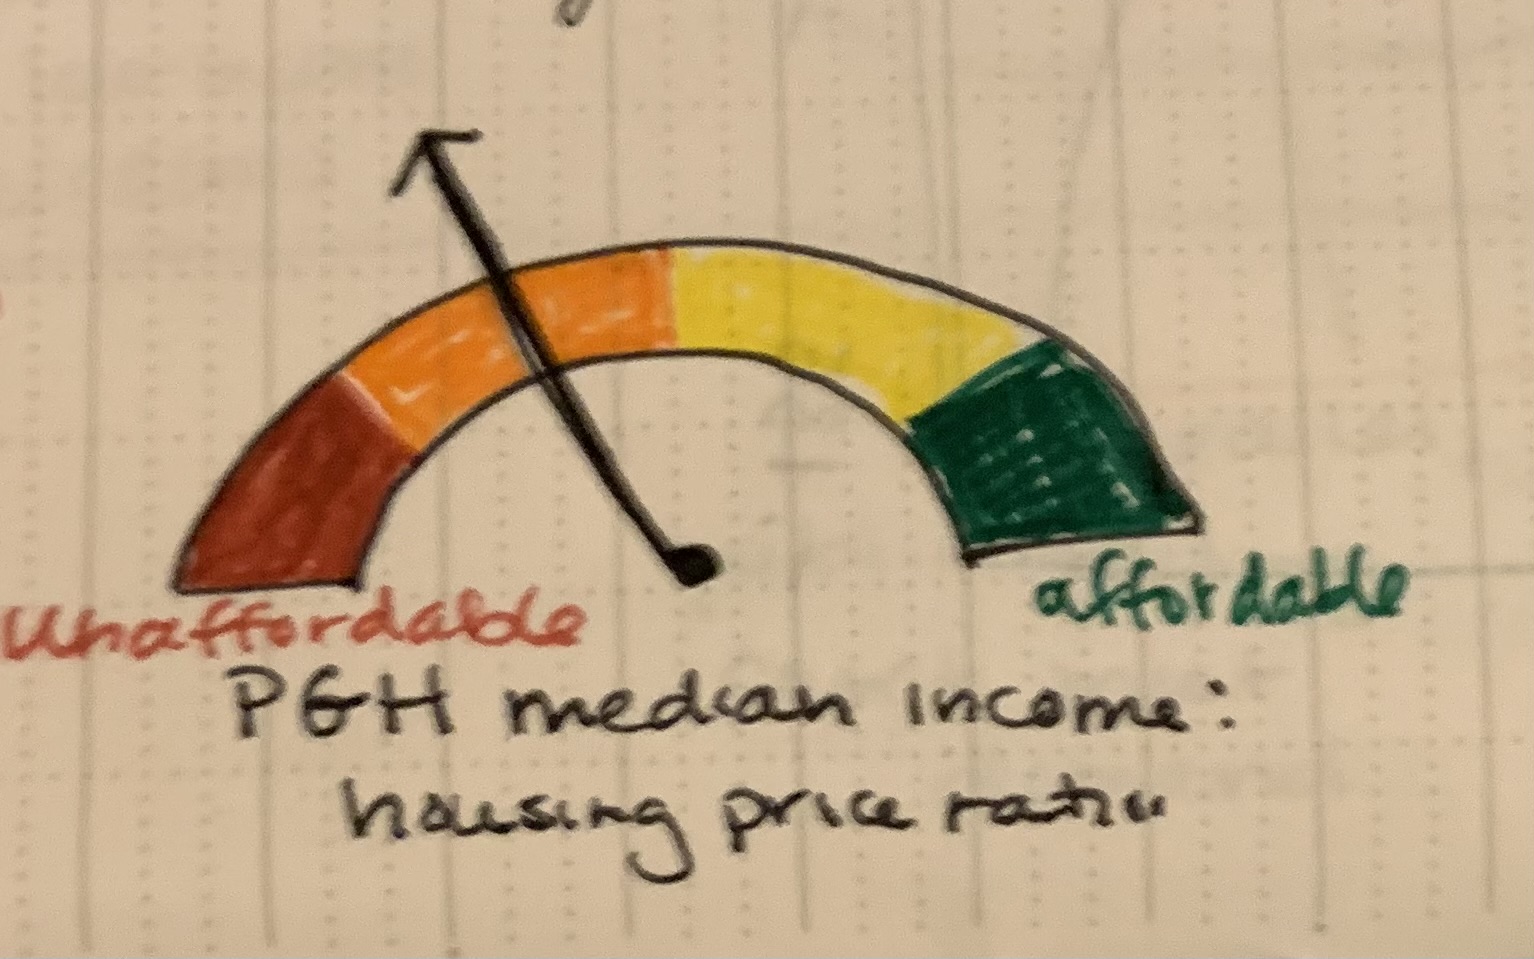 Unaffordable
affordable
PGH median income:
housing price ratio